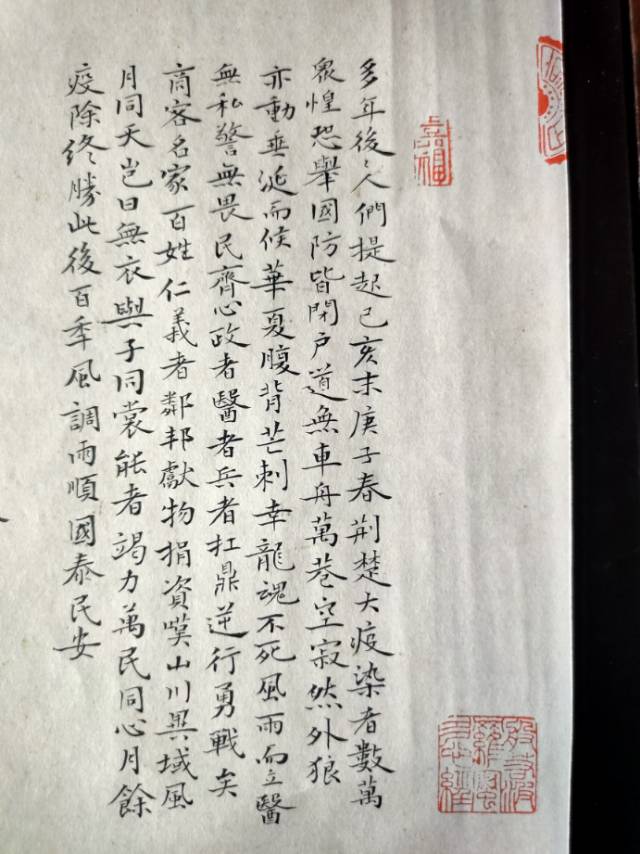 多年後〻人們提起己亥末庚子春荆楚大疫染者數萬
眾惶恐舉國防皆閉户道無車舟萬巷空寂然外狼
亦動垂涎而候華夏腹背芒刺幸龍魂不死風雨而立醫
無私警無畏民齊心政者醫者兵者扛鼎逆行勇戰矣
商客名家百姓仁義者鄰邦獻物捐資嘆山川異域風
月同天岂曰無衣與子同裳能者竭力萬民同心月餘
疫除終勝此後百年風調雨順國泰民安